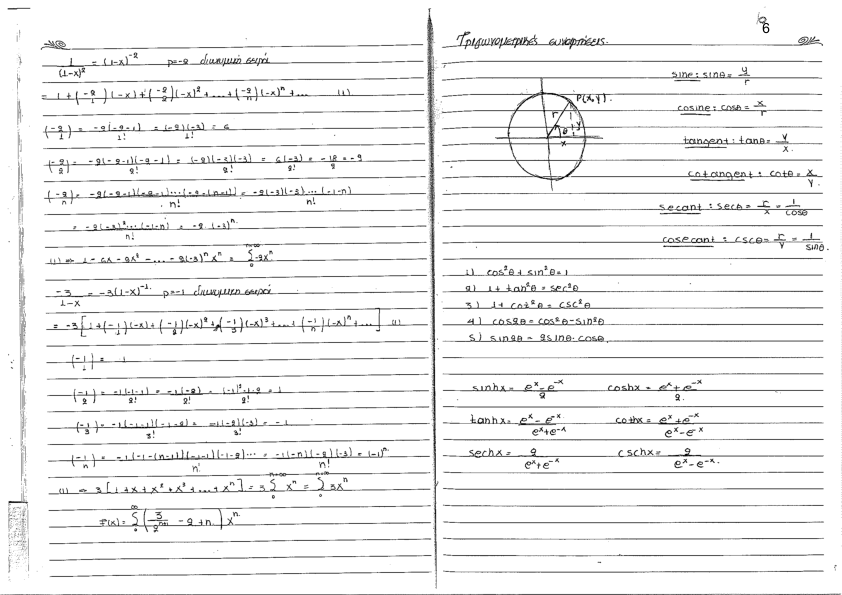 1/(1-x)² = (1-x)⁻² p=-2 διωνυμική σειρά
= 1+(-2/1)(-x)+(-2/2)(-x)²+...+(-2/n)(-x)ⁿ+... (1)
(-2/1) = -2(-2-1)/1! = (-2)(-3)/1! = 6
(-2/2) = -2(-2-1)(-2-1)/2! = (-2)(-3)(-3)/2! = 6(-3)/2! = -18/2 = -9
(-2/n) = -2(-2-1)(-2-1)...(-2-(n-1))/n! = -2(-3)(-3)...(-1-n)/n!
= -2(-3)²...(-1-n)/n! = -2·(-3)ⁿ
(1) ⇒ 1-6x-9x²-...-2(-3)ⁿxⁿ = Σ₀ⁿ⁼∞ -2xⁿ
-3/(1-x) = -3(1-x)⁻¹ p=-1 διωνυμική σειρά
= -3[1+(-1/1)(-x)+(-1/2)(-x)²+(-1/3)(-x)³+...+(-1/n)(-x)ⁿ+...] (1)
(-1/1) = 1
(-1/2) = -1(-1-1)/2! = -1(-2)/2! = (-1)²·1·2/2! = 1
(-1/3) = -1(-1-1)(-1-2)/3! = -1(-2)(-3)/3! = -1
(-1/n) = -1(-1-(n-1))(-1-1)(-1-2).../n! = -1(-n)(-2)(-3)/n! = (-1)ⁿ
(1) ⇒ 3[1+x+x²+x³+...+xⁿ] = 3Σ₀ⁿ⁼∞ xⁿ = Σ₀ⁿ⁼∞ 3xⁿ
F(x) = Σ₀^∞ (3/2ⁿ⁺¹ - 2+n) xⁿ
6
Τριγωνομετρικές συναρτήσεις.
P(x,y).
r
θ
y
x
sine: sinθ = y/r
cosine: cosθ = x/r
tangent: tanθ = y/x
cotangent: cotθ = x/y
secant: secθ = r/x = 1/cosθ
cosecant: cscθ = r/y = 1/sinθ
1) cos²θ + sin²θ = 1
2) 1 + tan²θ = sec²θ
3) 1 + cot²θ = csc²θ
4) cos2θ = cos²θ - sin²θ
5) sin2θ = 2sinθ·cosθ
sinhx = (eˣ-e⁻ˣ)/2 coshx = (eˣ+e⁻ˣ)/2
tanhx = (eˣ-e⁻ˣ)/(eˣ+e⁻ˣ) cothx = (eˣ+e⁻ˣ)/(eˣ-e⁻ˣ)
sechx = 2/(eˣ+e⁻ˣ) cschx = 2/(eˣ-e⁻ˣ)